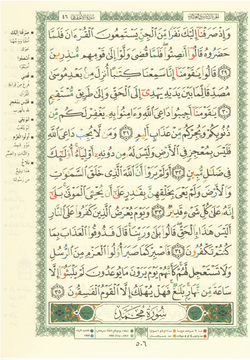 وَإِذْ صَرَفْنَا إِلَيْكَ نَفَرًا مِّنَ الْجِنِّ يَسْتَمِعُونَ الْقُرْءَانَ فَلَمَّا
حَضَرُوهُ قَالُوا أَنصِتُوا فَلَمَّا قُضِيَ وَلَّوْا إِلَى قَوْمِهِم مُّنذِرِينَ
٢٩ قَالُوا يَاقَوْمَنَا إِنَّا سَمِعْنَا كِتَابًا أُنزِلَ مِن بَعْدِ مُوسَى
مُصَدِّقًا لِّمَا بَيْنَ يَدَيْهِ يَهْدِي إِلَى الْحَقِّ وَإِلَى طَرِيقٍ مُّسْتَقِيمٍ
٣٠ يَاقَوْمَنَا أَجِيبُوا دَاعِيَ اللَّهِ وَءَامِنُوا بِهِ يَغْفِرْ لَكُم مِّن
ذُنُوبِكُمْ وَيُجِرْكُم مِّنْ عَذَابٍ أَلِيمٍ ٣١ وَمَن لَّا يُجِبْ دَاعِيَ اللَّهِ
فَلَيْسَ بِمُعْجِزٍ فِي الْأَرْضِ وَلَيْسَ لَهُ مِن دُونِهِ أَوْلِيَاءُ أُولَئِكَ
فِي ضَلَالٍ مُّبِينٍ ٣٢ أَوَلَمْ يَرَوْا أَنَّ اللَّهَ الَّذِي خَلَقَ السَّمَاوَاتِ
وَالْأَرْضَ وَلَمْ يَعْيَ بِخَلْقِهِنَّ بِقَادِرٍ عَلَى أَن يُحْيِيَ الْمَوْتَى بَلَى
إِنَّهُ عَلَى كُلِّ شَيْءٍ قَدِيرٌ ٣٣ وَيَوْمَ يُعْرَضُ الَّذِينَ كَفَرُوا عَلَى النَّارِ
أَلَيْسَ هَذَا بِالْحَقِّ قَالُوا بَلَى وَرَبِّنَا قَالَ فَذُوقُوا الْعَذَابَ بِمَا
كُنتُمْ تَكْفُرُونَ ٣٤ فَاصْبِرْ كَمَا صَبَرَ أُولُوا الْعَزْمِ مِنَ الرُّسُلِ
وَلَا تَسْتَعْجِل لَّهُمْ كَأَنَّهُمْ يَوْمَ يَرَوْنَ مَا يُوعَدُونَ لَمْ يَلْبَثُوا إِلَّا
سَاعَةً مِّن نَّهَارٍ بَلَاغٌ فَهَلْ يُهْلَكُ إِلَّا الْقَوْمُ الْفَاسِقُونَ ٣٥
سُورَةُ مُحَمَّدٍ
٥٠٦